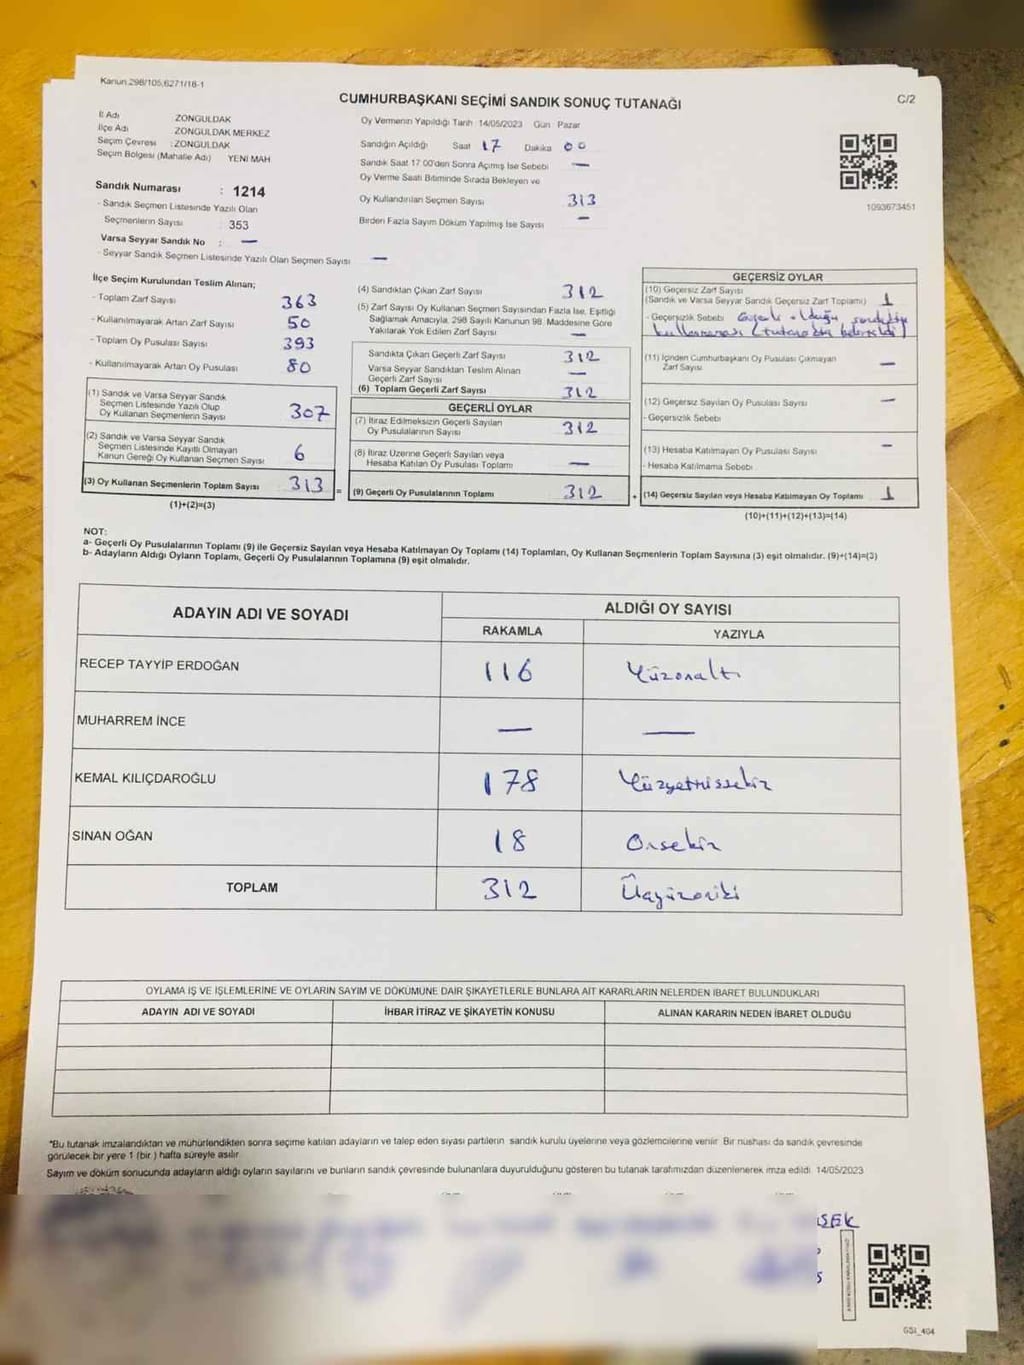 Kanun.298/105,6271/18-1
CUMHURBAŞKANI SEÇİMİ SANDIK SONUÇ TUTANAĞI
C/2
İl Adı ZONGULDAK
İlçe Adı ZONGULDAK MERKEZ
Seçim Çevresi :ZONGULDAK
Seçim Bölgesi (Mahalle Adı) YENİ MAH
Oy Vermenin Yapıldığı Tarih 14/05/2023 Gün : Pazar
Sandığın Açıldığı Saat 17 Dakika 00
Sandık Saat 17 00'den Sonra Açımış İse Sebebi —
Oy Verme Saati Bitiminde Sırada Bekleyen ve
Oy Kullandırılan Seçmen Sayısı 313
Birden Fazla Sayım Döküm Yapılmış İse Sayısı —
1093673451
Sandık Numarası : 1214
- Sandık Seçmen Listesinde Yazılı Olan
Seçmenlerin Sayısı : 353
Varsa Seyyar Sandık No : —
- Seyyar Sandık Seçmen Listesinde Yazılı Olan Seçmen Sayısı —
İlçe Seçim Kurulundan Teslim Alınan;
- Toplam Zarf Sayısı 363
- Kullanılmayarak Artan Zarf Sayısı 50
- Toplam Oy Pusulası Sayısı 393
- Kullanılmayarak Artan Oy Pusulası 80
(1) Sandık ve Varsa Seyyar Sandık
Seçmen Listesinde Yazılı Olup
Oy Kullanan Seçmenlerin Sayısı 307
(2) Sandık ve Varsa Seyyar Sandık
Seçmen Listesinde Kayıtlı Olmayan
Kanun Gereği Oy Kullanan Seçmen Sayısı 6
(3) Oy Kullanan Seçmenlerin Toplam Sayısı 313 =
(1)+(2)=(3)
(4) Sandıktan Çıkan Zarf Sayısı 312
(5) Zarf Sayısı Oy Kullanan Seçmen Sayısından Fazla İse, Eşitliği
Sağlamak Amacıyla, 298 Sayılı Kanunun 98. Maddesine Göre
Yakılarak Yok Edilen Zarf Sayısı —
Sandıkta Çıkan Geçerli Zarf Sayısı 312
Varsa Seyyar Sandıktan Teslim Alınan
Geçerli Zarf Sayısı —
(6) Toplam Geçerli Zarf Sayısı 312
GEÇERLİ OYLAR
(7) İtiraz Edilmeksizin Geçerli Sayılan
Oy Pusulalarının Sayısı 312
(8) İtiraz Üzerine Geçerli Sayılan veya
Hesaba Katılan Oy Pusulası Toplamı —
(9) Geçerli Oy Pusulalarının Toplamı 312 +
GEÇERSİZ OYLAR
(10) Geçersiz Zarf Sayısı
(Sandık ve Varsa Seyyar Sandık Geçersiz Zarf Toplamı) 1
- Geçersizlik Sebebi Geçerli olduğu sandıkta
kullanmaması (tutanakta belirtildi)
(11) İçinden Cumhurbaşkanı Oy Pusulası Çıkmayan
Zarf Sayısı —
(12) Geçersiz Sayılan Oy Pusulası Sayısı —
- Geçersizlik Sebebi
(13) Hesaba Katılmayan Oy Pusulası Sayısı —
- Hesaba Katılmama Sebebi
(14) Geçersiz Sayılan veya Hesaba Katılmayan Oy Toplamı 1
(10)+(11)+(12)+(13)=(14)
NOT:
a- Geçerli Oy Pusulalarının Toplamı (9) ile Geçersiz Sayılan veya Hesaba Katılmayan Oy Toplamı (14) Toplamları, Oy Kullanan Seçmenlerin Toplam Sayısına (3) eşit olmalıdır. (9)+(14)=(3)
b- Adayların Aldığı Oyların Toplamı, Geçerli Oy Pusulalarının Toplamına (9) eşit olmalıdır.
ADAYIN ADI VE SOYADI
ALDIĞI OY SAYISI
RAKAMLA YAZIYLA
RECEP TAYYİP ERDOĞAN 116 Yüzonaltı
MUHARREM İNCE — —
KEMAL KILIÇDAROĞLU 178 Yüzyetmişsekiz
SİNAN OĞAN 18 Onsekiz
TOPLAM 312 Üçyüzoniki
OYLAMA İŞ VE İŞLEMLERİNE VE OYLARIN SAYIM VE DÖKÜMÜNE DAİR ŞİKAYETLERLE BUNLARA AİT KARARLARIN NELERDEN İBARET BULUNDUKLARI
ADAYIN ADI VE SOYADI İHBAR İTİRAZ VE ŞİKAYETİN KONUSU ALINAN KARARIN NEDEN İBARET OLDUĞU
*Bu tutanak imzalandıktan ve mühürlendikten sonra seçime katılan adayların ve talep eden siyasi partilerin sandık kurulu üyelerine veya gözlemcilerine verilir Bir nüshası da sandık çevresinde
görülecek bir yere 1 (bir ) hafta süreyle asılır
Sayım ve döküm sonucunda adayların aldığı oyların sayılarını ve bunların sandık çevresinde bulunanlara duyurulduğunu gösteren bu tutanak tarafımızdan düzenlenerek imza edildi 14/05/2023
ŞEK
GSI_404